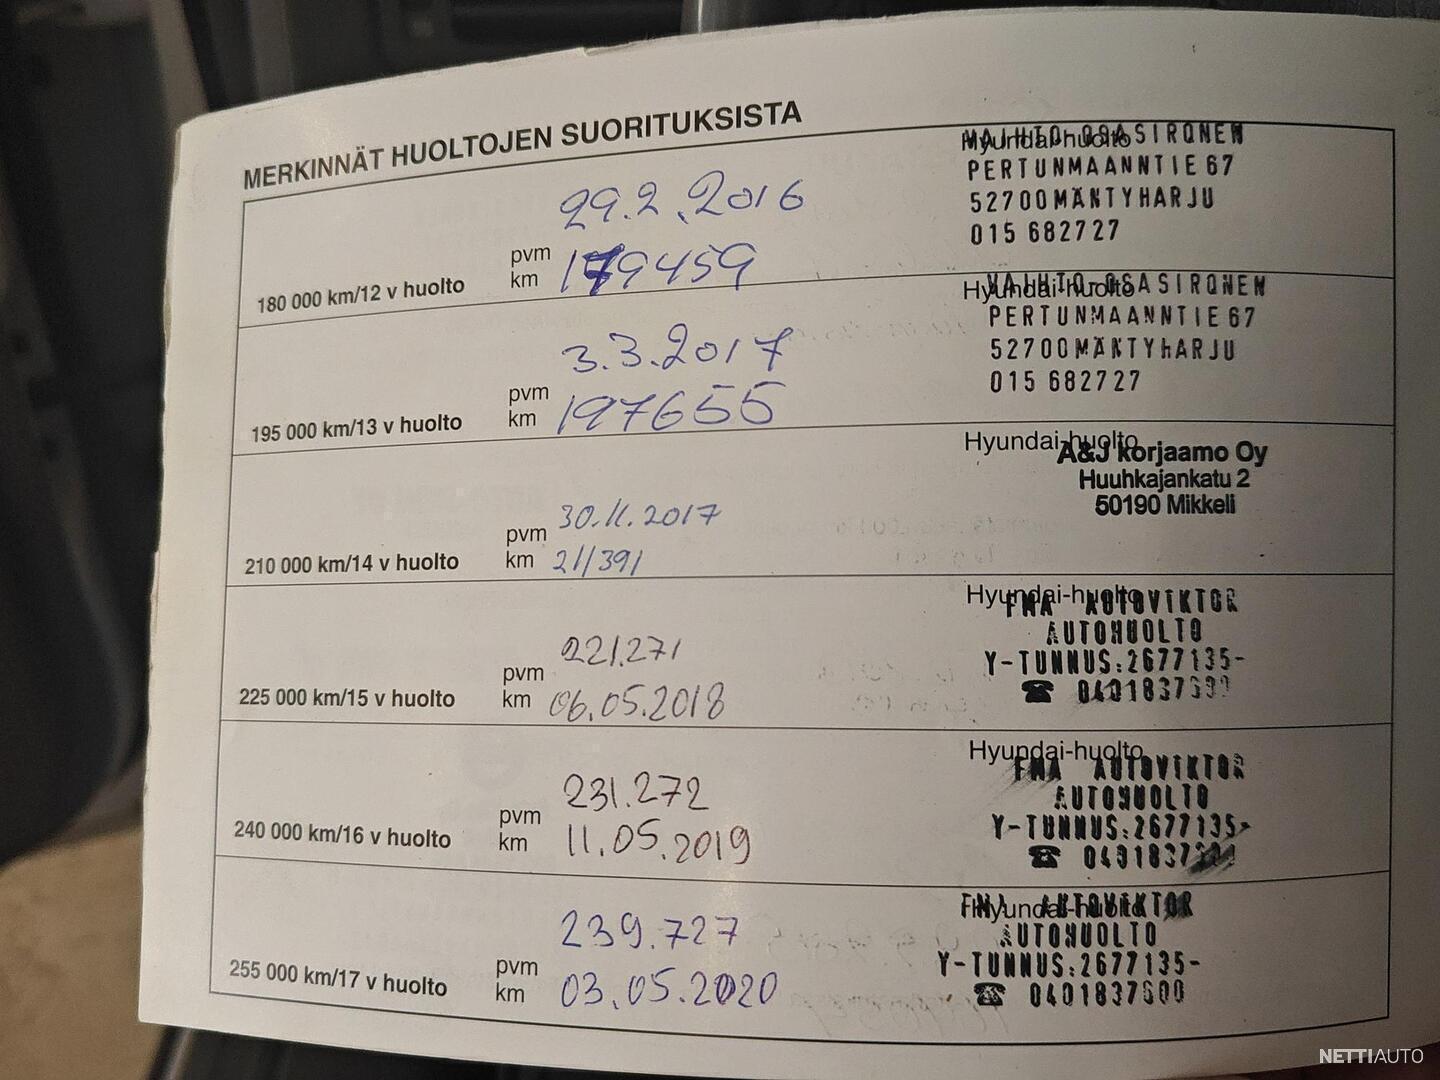 MERKINNÄT HUOLTOJEN SUORITUKSISTA
180 000 km/12 v huolto
pvm 29.2.2016
km 179459
Hyundai-huolto
VAIHTO-OSA SIRONEN
PERTUNMAANNTIE 67
52700 MÄNTYHARJU
015 682727
195 000 km/13 v huolto
pvm 3.3.2017
km 197655
Hyundai-huolto
VAIHTO-OSA SIRONEN
PERTUNMAANNTIE 67
52700 MÄNTYHARJU
015 682727
210 000 km/14 v huolto
pvm 30.11.2017
km 211391
Hyundai-huolto
A&J korjaamo Oy
Huuhkajankatu 2
50190 Mikkeli
225 000 km/15 v huolto
pvm 221.271
km 06.05.2018
Hyundai-huolto
AUTOVIKTOR
AUTOHUOLTO
Y-TUNNUS:2677135-
240 000 km/16 v huolto
pvm 231.272
km 11.05.2019
Hyundai-huolto
AUTOVIKTOR
AUTOHUOLTO
Y-TUNNUS:2677135-
255 000 km/17 v huolto
pvm 239.727
km 03.05.2020
Hyundai-huolto
AUTOVIKTOR
AUTOHUOLTO
Y-TUNNUS:2677135-
☎ 0401837600
NETTIAUTO